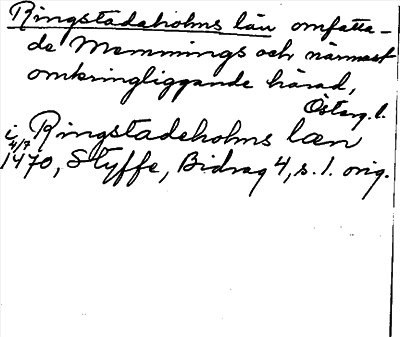 Ringstadaholms län omfatta-
de Memmings och närmast
omkringliggande härad,
Österg. l.
i Ringstadeholms læn
4/7
1470, Styffe, Bidrag 4, s. 1. orig.